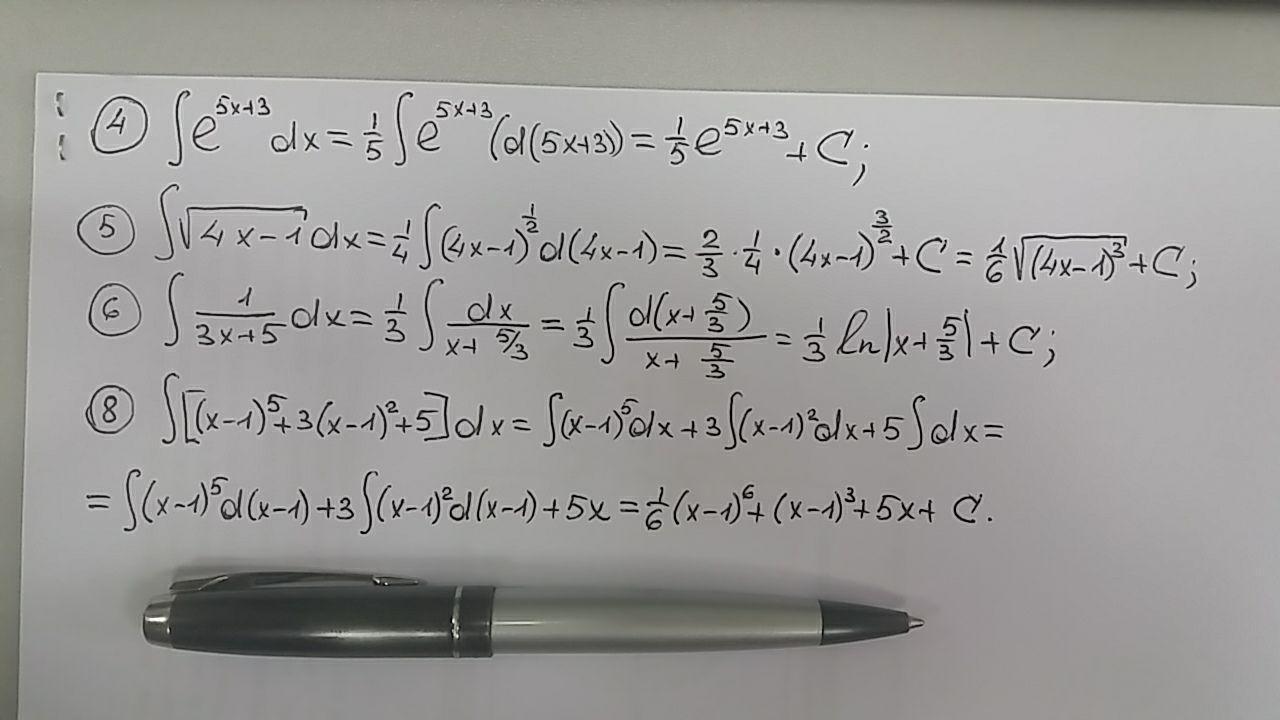 ④ ∫e^{5x+3} dx = 1/5 ∫e^{5x+3} (d(5x+3)) = 1/5 e^{5x+3} + C;
⑤ ∫√(4x−1) dx = 1/4 ∫(4x−1)^{1/2} d(4x−1) = 2/3 · 1/4 · (4x−1)^{3/2} + C = 1/6 √((4x−1)³) + C;
⑥ ∫ 1/(3x+5) dx = 1/3 ∫ dx/(x+5/3) = 1/3 ∫ d(x+5/3)/(x+5/3) = 1/3 ln|x+5/3| + C;
⑧ ∫[(x−1)⁵+3(x−1)²+5]dx = ∫(x−1)⁵dx+3∫(x−1)²dx+5∫dx=
= ∫(x−1)⁵d(x−1)+3∫(x−1)²d(x−1)+5x = 1/6(x−1)⁶+(x−1)³+5x+ C.